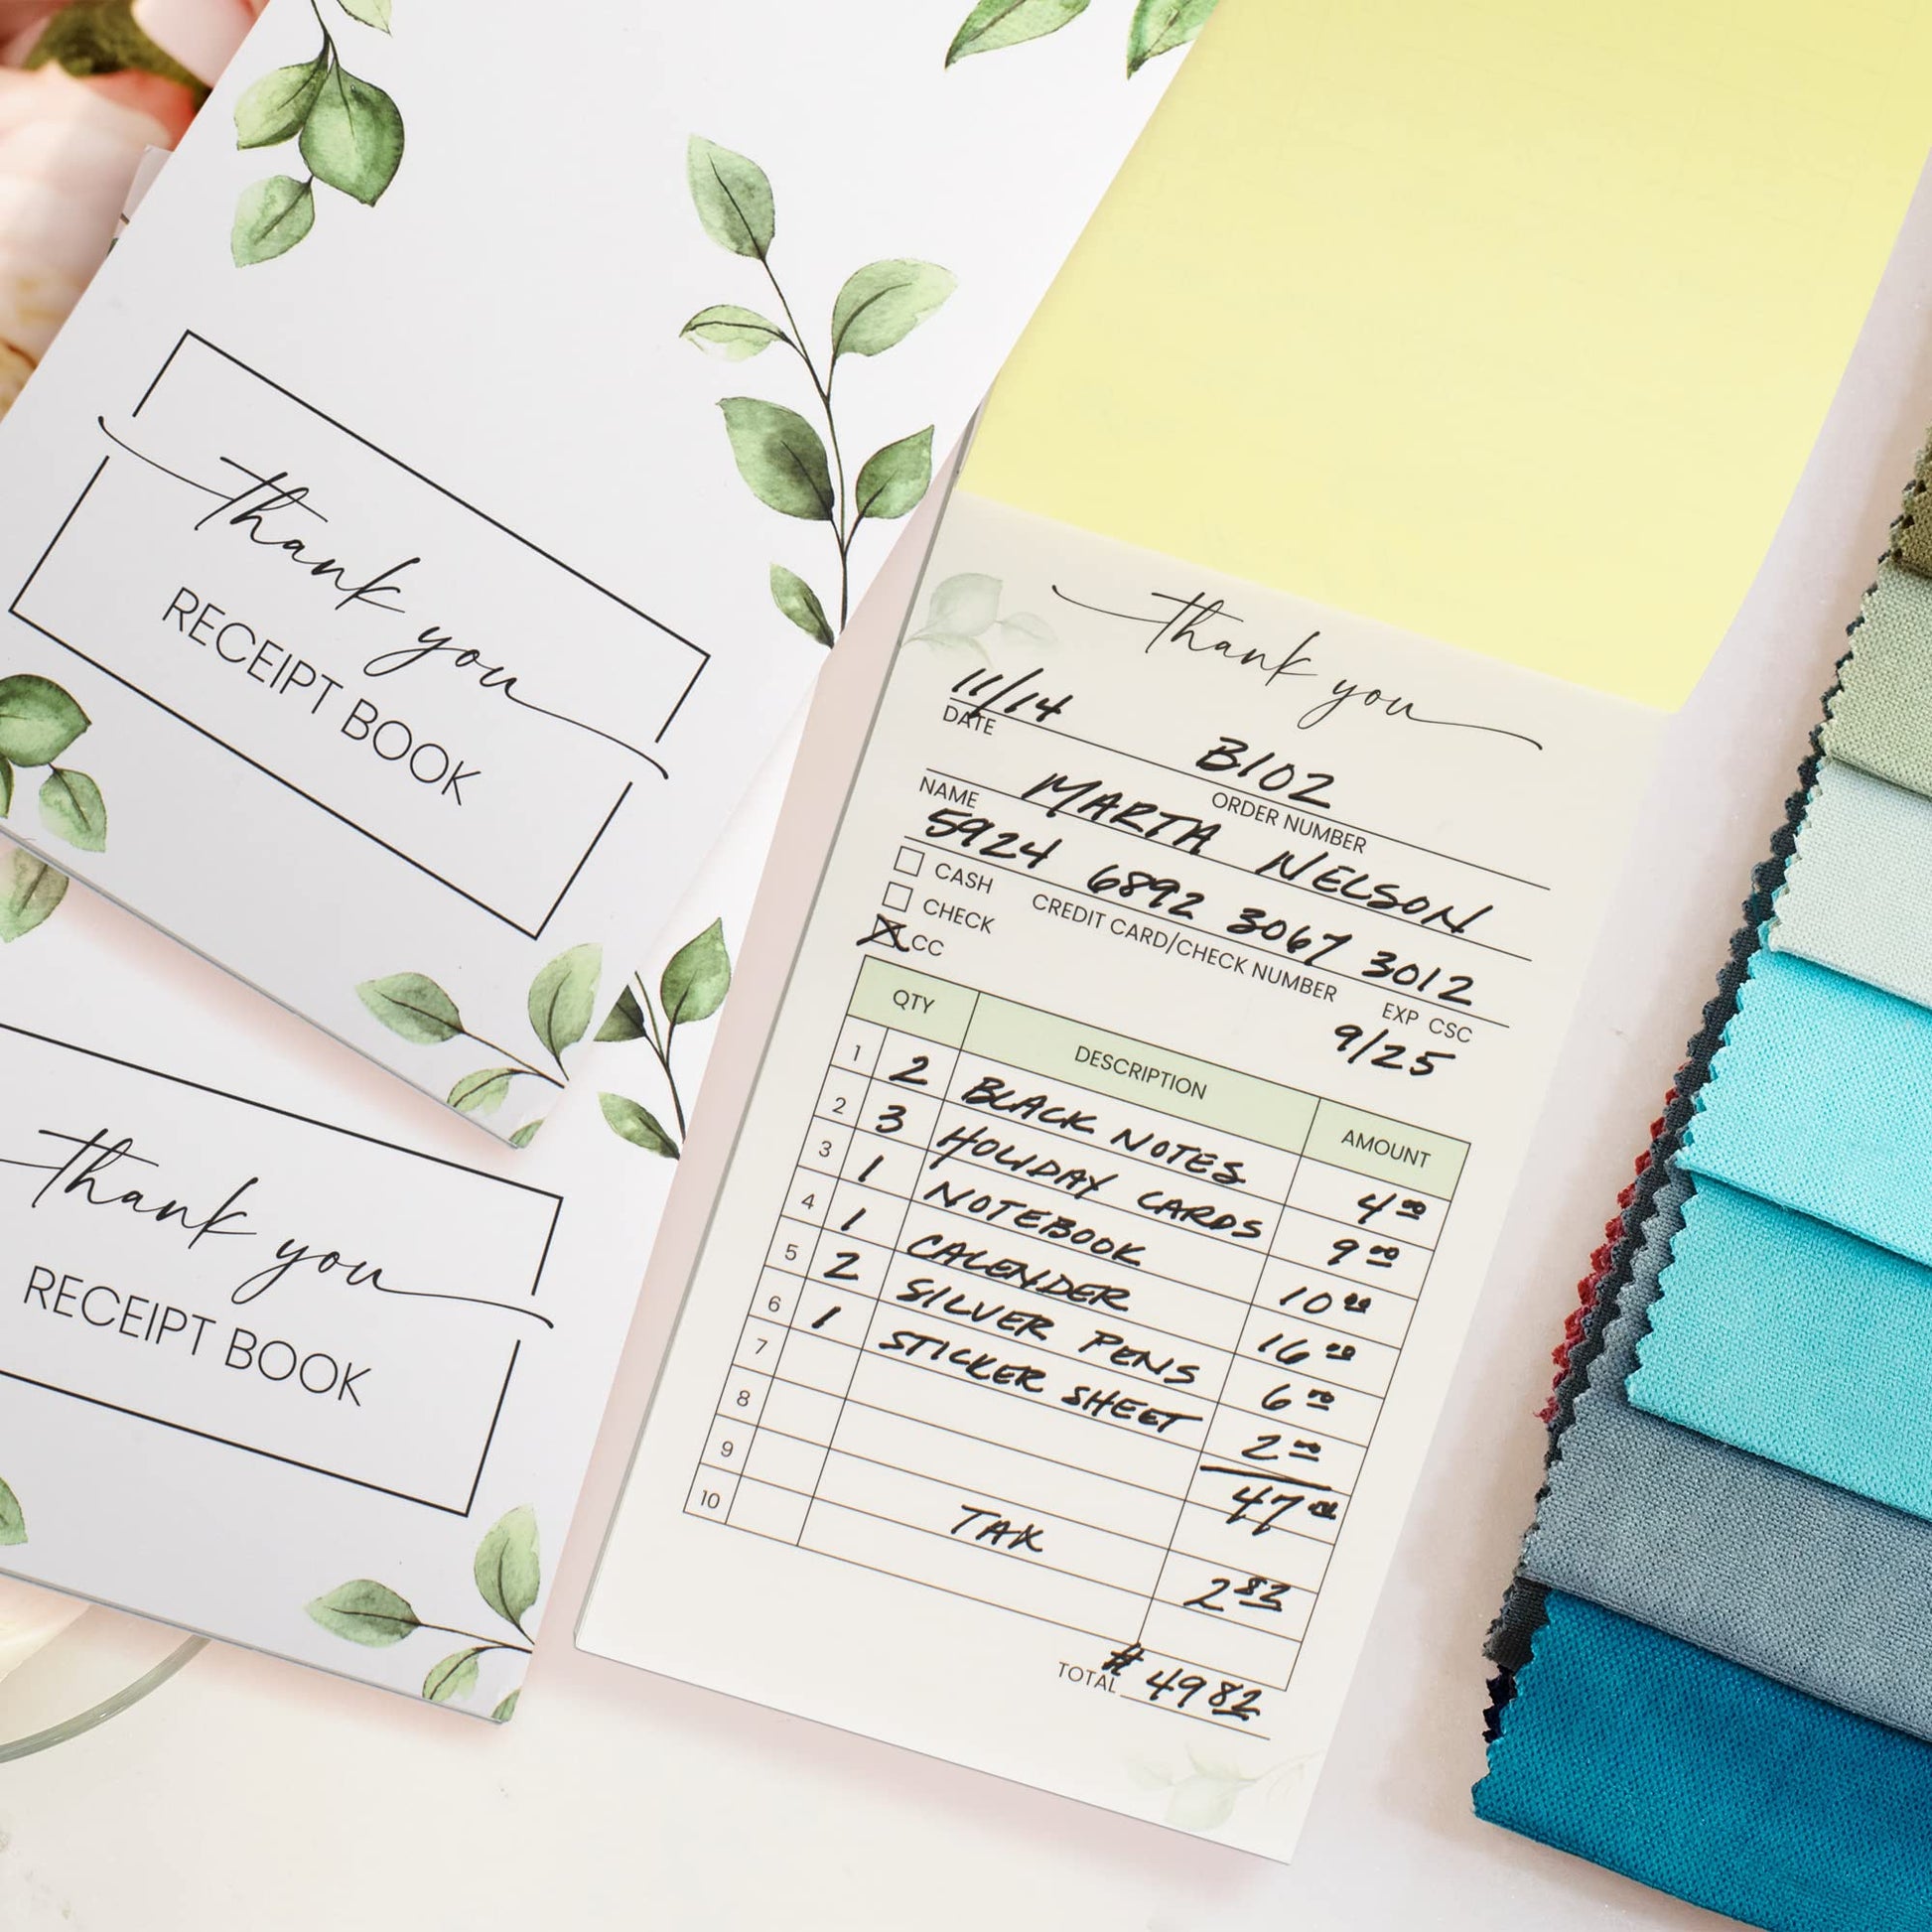 thank you
RECEIPT BOOK
thank you
RECEIPT BOOK
thank you
11/14
DATE
B102
ORDER NUMBER
NAME MARTA NELSON
5924 6892 3067 3012
CASH
CREDIT CARD/CHECK NUMBER EXP CSC
CHECK
9/25
X CC
QTY DESCRIPTION AMOUNT
1 2 BLACK NOTES 4 00
2 3 HOLIDAY CARDS 9 00
3 1 NOTEBOOK 10 00
4 1 CALENDER 16 00
5 2 SILVER PENS 6 00
6 1 STICKER SHEET 2 00
7 47 00
8
9 TAX 2 82
10
TOTAL # 49 82